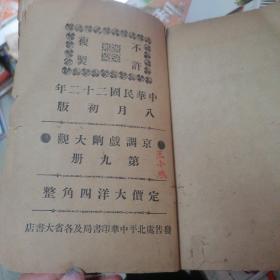 不許
複製
中華民國二十二年
八月初版
京調戲齣大觀
第九册
定價大洋四角整
發售處北平中華印書局及各省大書店